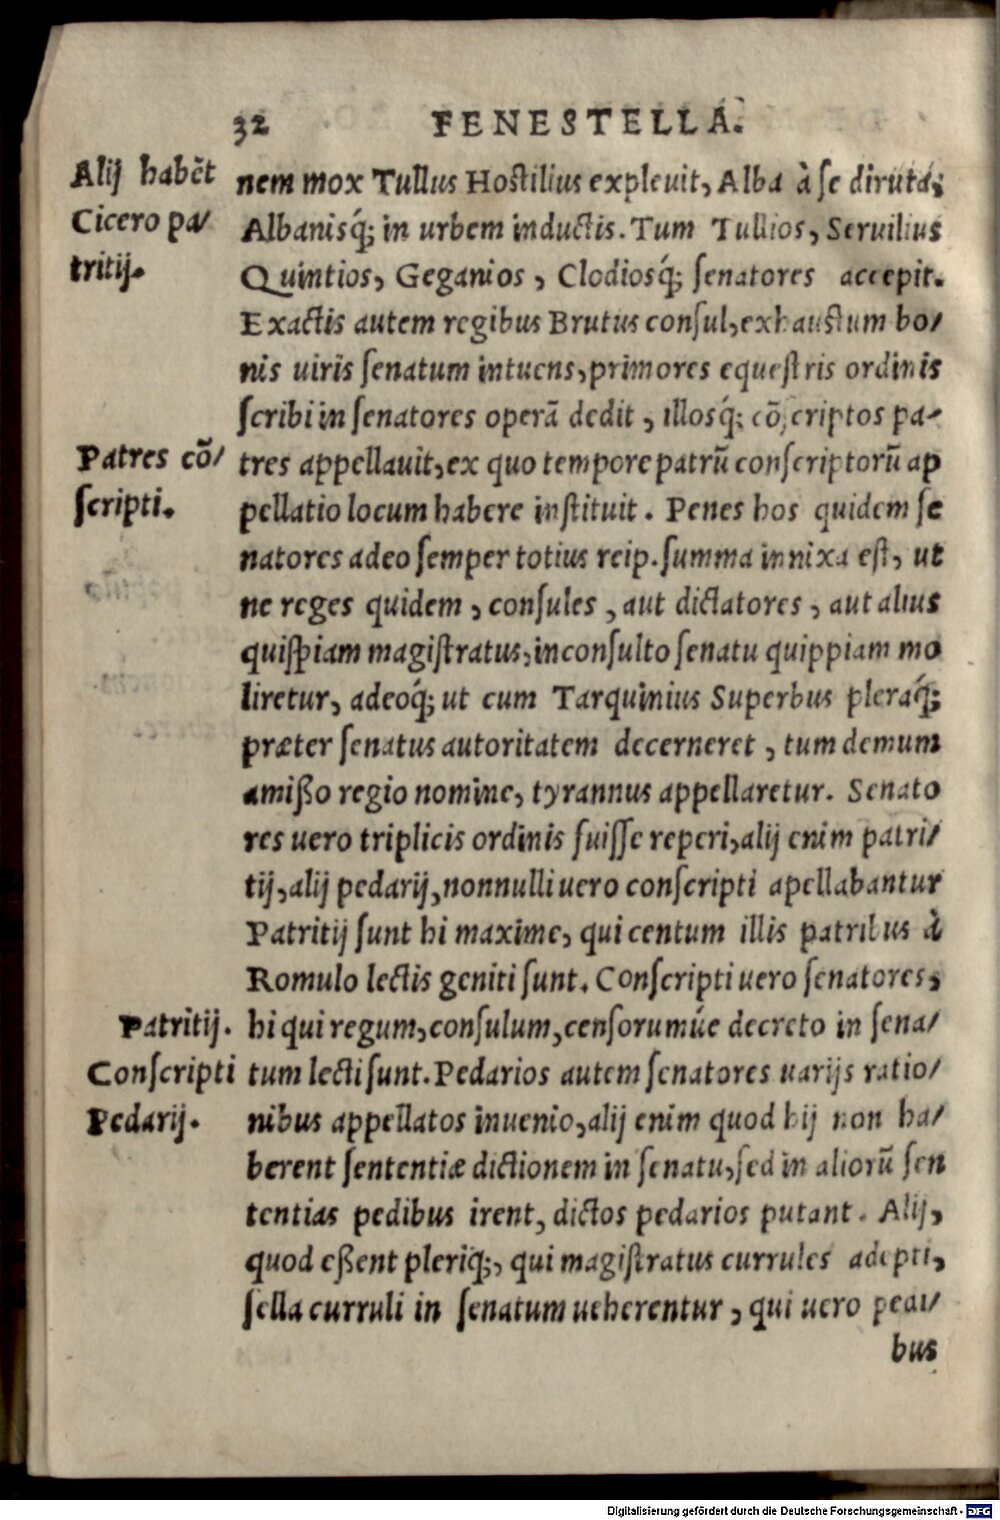 32 FENESTELLA.
Alij habēt
Cicero pa/
tritij.
nem mox Tullus Hostilius expleuit, Alba à se diruta,
Albanisq́; in urbem inductis. Tum Tullios, Seruilius
Quintios, Geganios, Clodiosq́; senatores accepit.
Exactis autem regibus Brutus consul, exhaustum bo/
nis uiris senatum intuens, primores equestris ordinis
scribi in senatores operā dedit, illosq́; cōscriptos pa-
Patres cō/
scripti.
tres appellauit, ex quo tempore patrū conscriptorū ap
pellatio locum habere instituit. Penes hos quidem se
natores adeo semper totius reip. summa innixa est, ut
ne reges quidem, consules, aut dictatores, aut alius
quispiam magistratus, inconsulto senatu quippiam mo
liretur, adeoq́; ut cum Tarquinius Superbus pleraq́;
præter senatus autoritatem decerneret, tum demum
amißo regio nomine, tyrannus appellaretur. Senato
res uero triplicis ordinis fuisse reperi, alij enim patri/
tij, alij pedarij, nonnulli uero conscripti apellabantur
Patritij sunt hi maxime, qui centum illis patribus à
Romulo lectis geniti sunt. Conscripti uero senatores,
Patritij.
Conscripti
Pedarij.
hi qui regum, consulum, censorumúe decreto in sena/
tum lecti sunt. Pedarios autem senatores uarijs ratio/
nibus appellatos inuenio, alij enim quod hij non ha/
berent sententiæ dictionem in senatu, sed in aliorū sen
tentias pedibus irent, dictos pedarios putant. Alij,
quod eßent pleriq́;, qui magistratus currules adepti,
sella curruli in senatum ueherentur, qui uero pedi/
bus
Digitalisierung gefördert durch die Deutsche Forschungsgemeinschaft - DFG